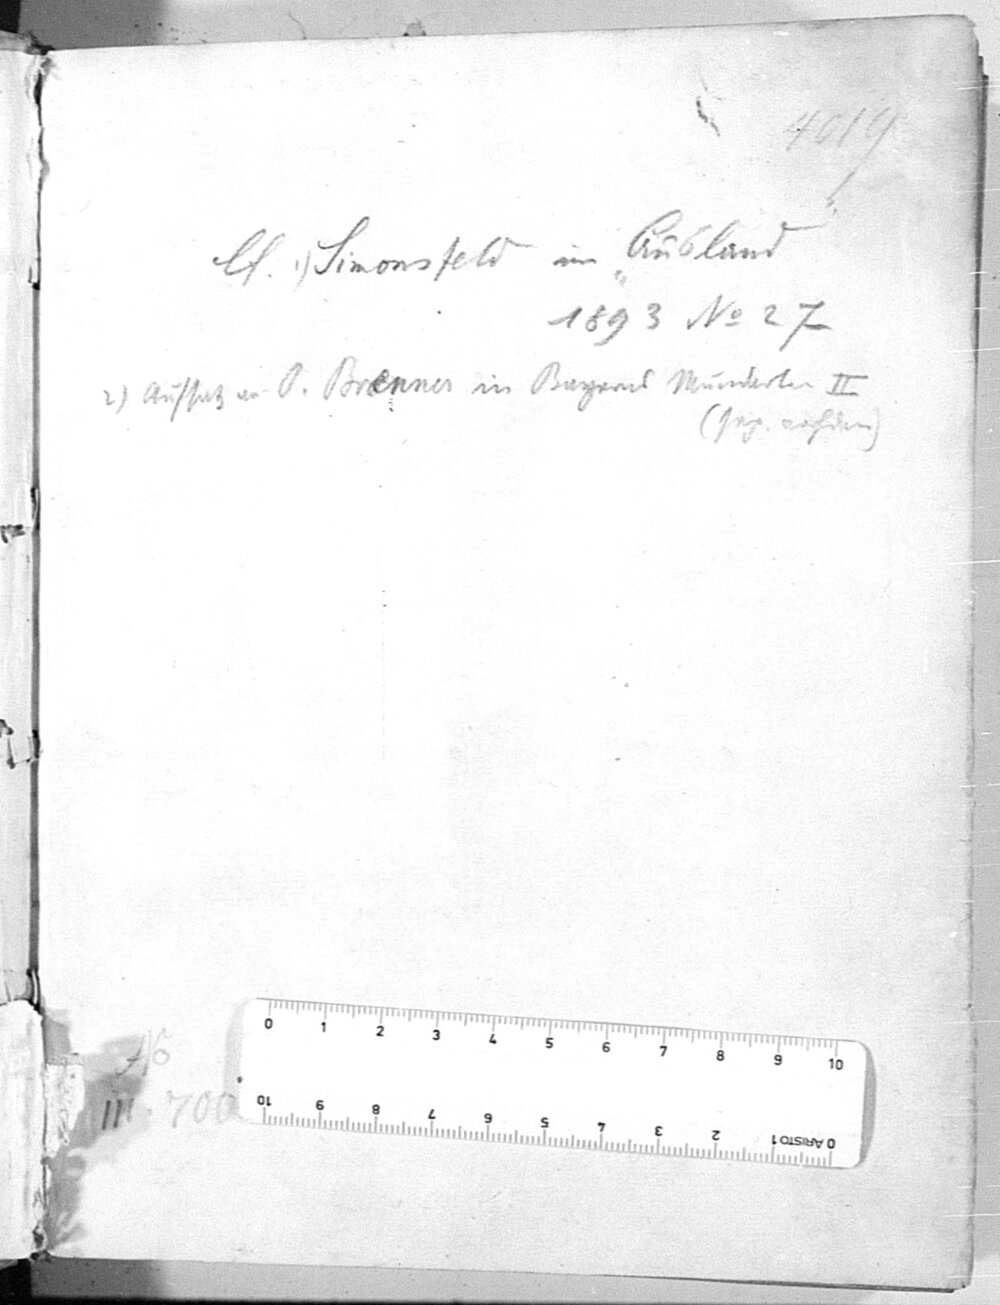 4019
Cf. 1) Simonsfeld im „Ausland"
1893 No 27
2) Aufsatz von O. Brenner in Bayerns Mundarten II
46
III. 700
0 1 2 3 4 5 6 7 8 9 10
0 ARISTO 1 2 3 4 5 6 7 8 9 10